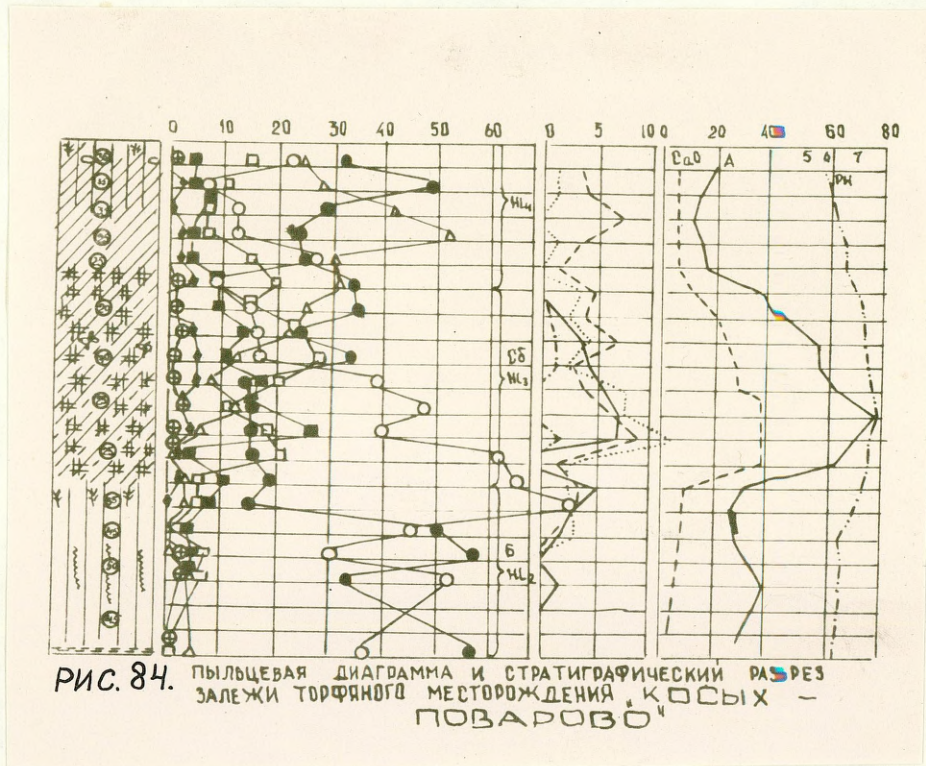 0 10 20 30 40 50 60 0 5 10 0 20 40 60 80
CaO A 5 6 7
PH
HL4
Сб
HL3
Б
HL2
РИС. 84. ПЫЛЬЦЕВАЯ ДИАГРАММА И СТРАТИГРАФИЧЕСКИЙ РАЗРЕЗ
ЗАЛЕЖИ ТОРФЯНОГО МЕСТОРОЖДЕНИЯ „КОСЫХ –
ПОВАРОВО"